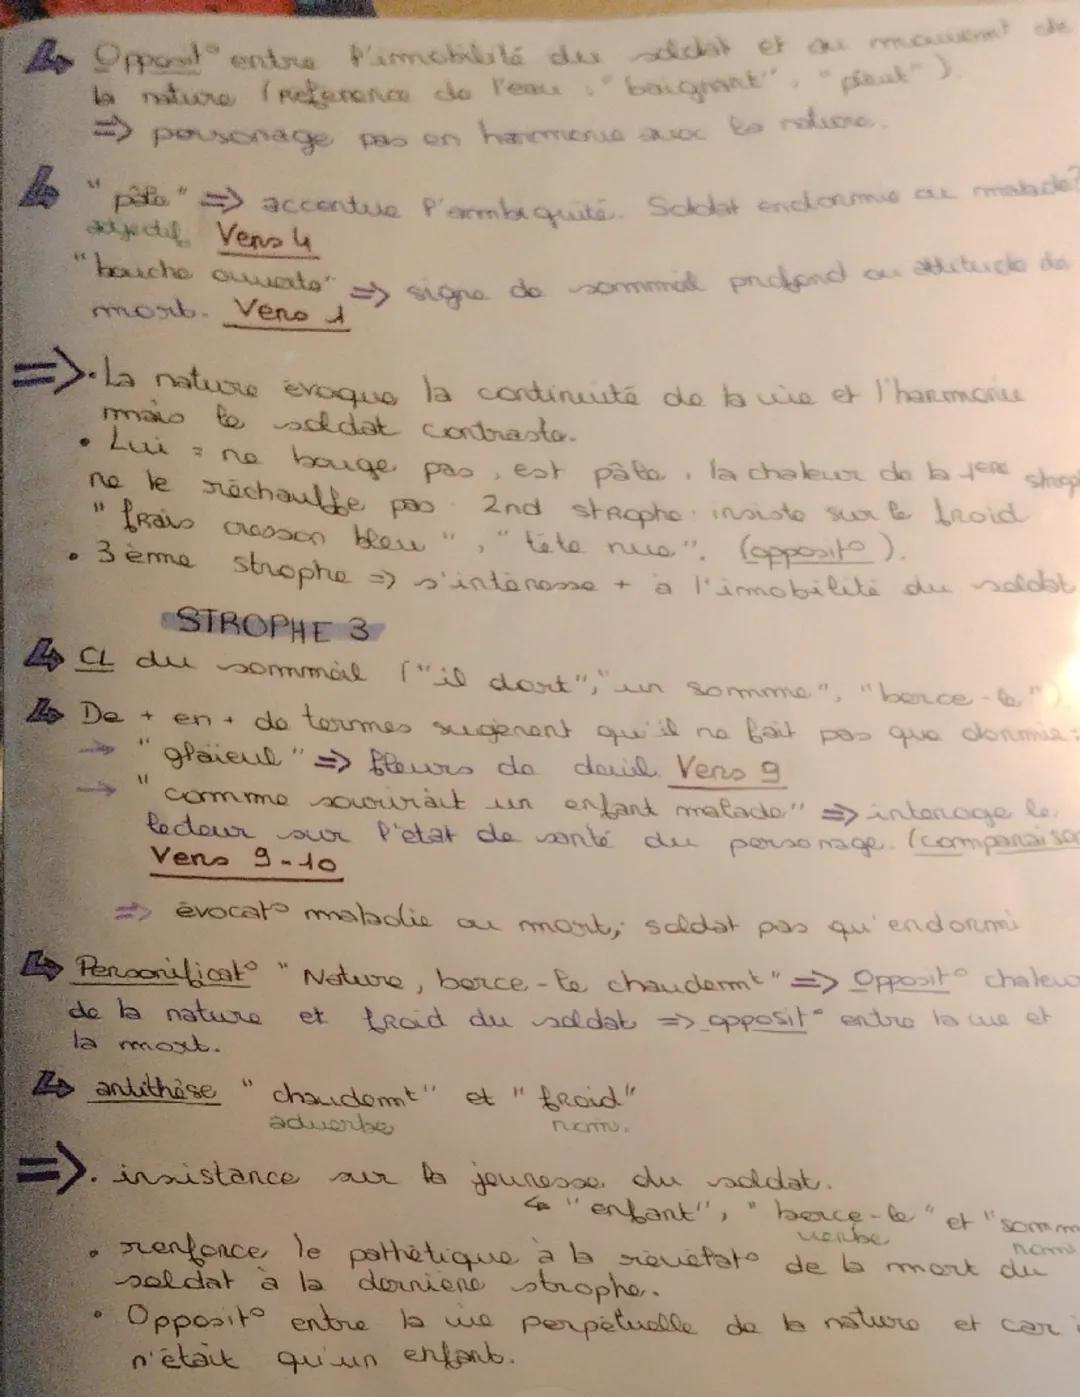 Opposit° entre l'immobilité du soldat et au mouvemt de
la nature (reference de l'eau : "baignant", "pleut").
=> personage pas en harmonie avec la nature.
"pâle" => accentue l'ambiguité. Soldat endormie ou malade?
adjectif Vers 4
"bouche ouverte" => signe de sommeil profond ou attitude de
mort. Vers 1
=> • La nature évoque la continuité de la vie et l'harmonie
mais le soldat contraste.
• Lui = ne bouge pas, est pâle, la chaleur de la 1ere strop
ne le réchauffe pas. 2nd strophe : insiste sur le froid
"frais cresson bleu", "tête nue". (opposit°).
• 3ème strophe => s'intéresse + à l'imobilité du soldat
STROPHE 3
CL du sommeil ("il dort", "un somme", "berce-le")
De + en + de termes sugèrent qu'il ne fait pas que dormir :
-> "glaïeul" => fleurs de deuil. Vers 9
-> "comme sourirait un enfant malade" => interoge le
lecteur sur l'état de santé du personage. (comparaison
Vers 9-10
=> évocat° maladie ou mort, soldat pas qu'endormi
Personificat° "Nature, berce-le chaudemt" => Opposit° chaleur
de la nature et froid du soldat => opposit° entre la vie et
la mort.
antithèse "chaudemt" et "froid"
adverbe nom.
=> • insistance sur la jeunesse du soldat.
"enfant", "berce-le" et "somm
verbe nom
• renforce le pathétique à la révélat° de la mort du
soldat à la dernière strophe.
• Opposit° entre la vie perpétuelle de la nature et car i
n'était qu'un enfant.